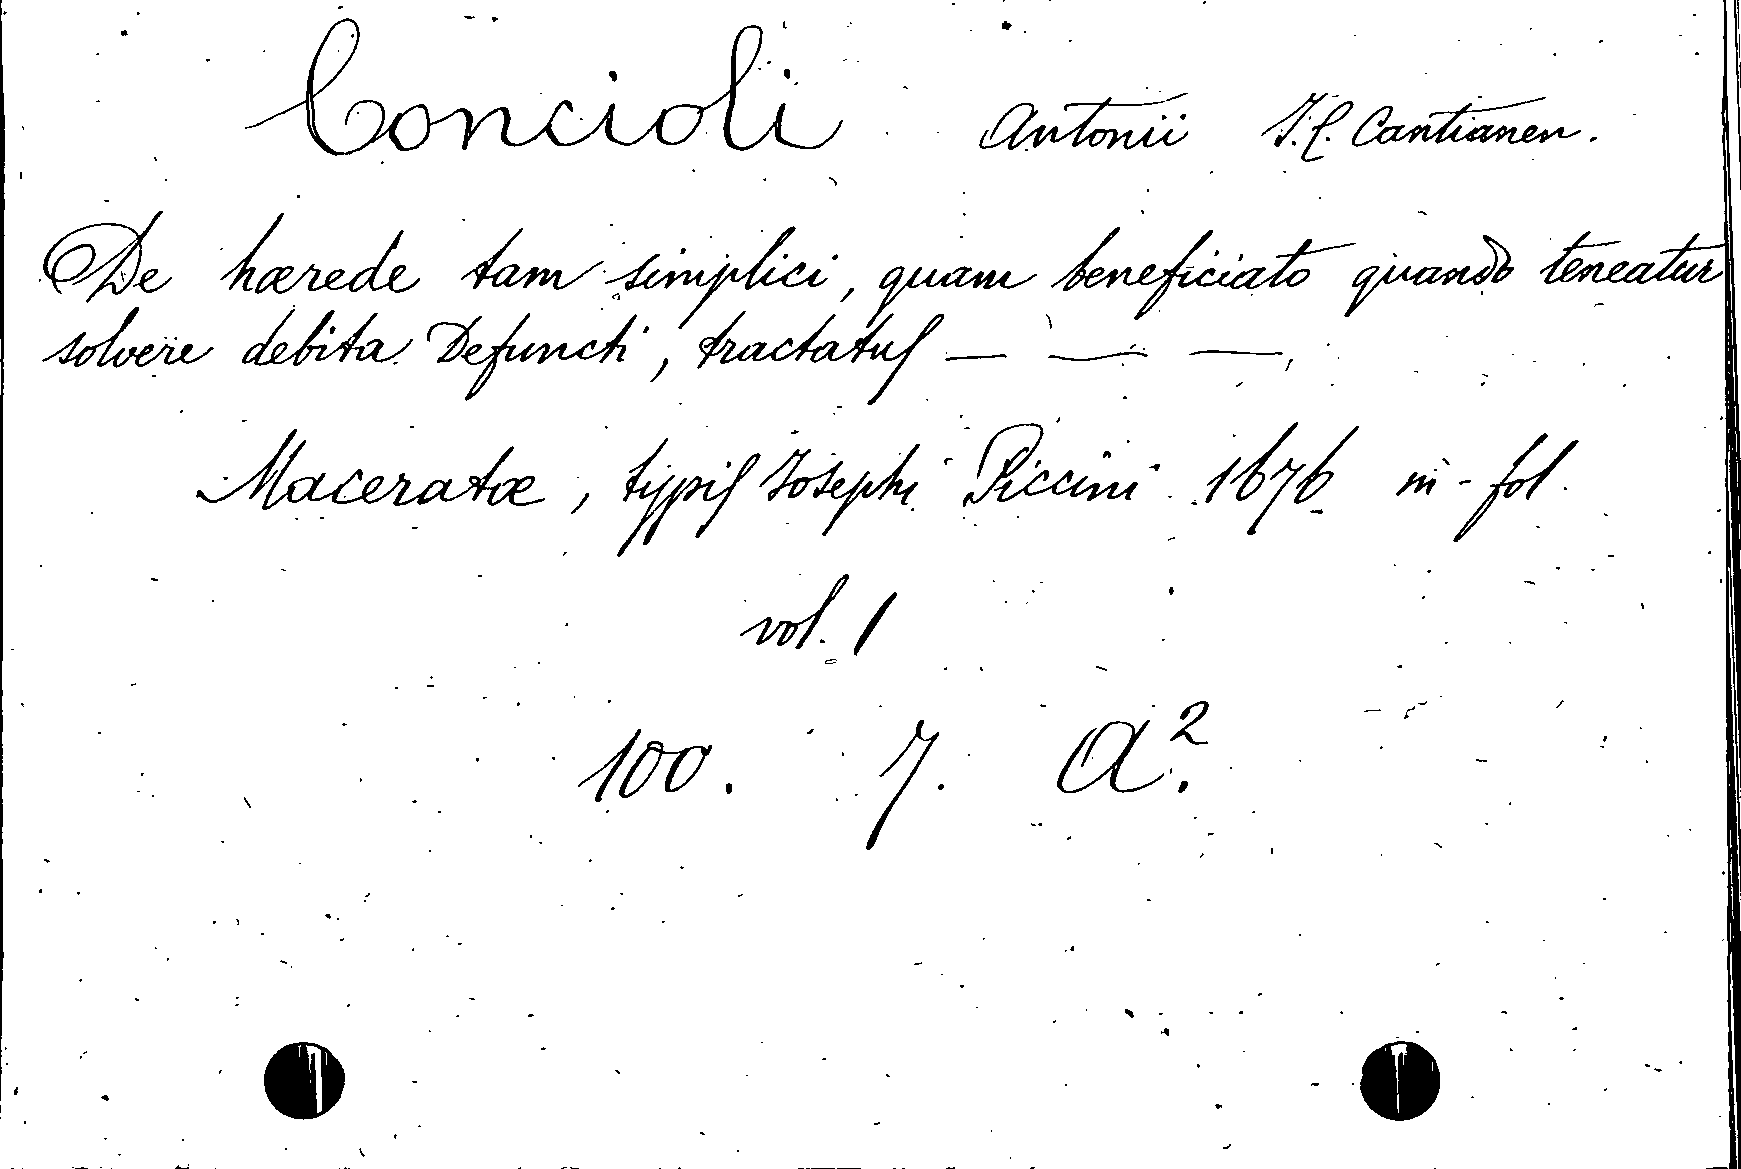 Concioli Antonii J.C. Cantianen.
De hærede tam simplici, quam beneficiato quando teneatur
solvere debita Defuncti, tractatus — — —
Maceratæ, typis Josephi Piccini 1676 in-fol.
vol. 1
100. 7. A².